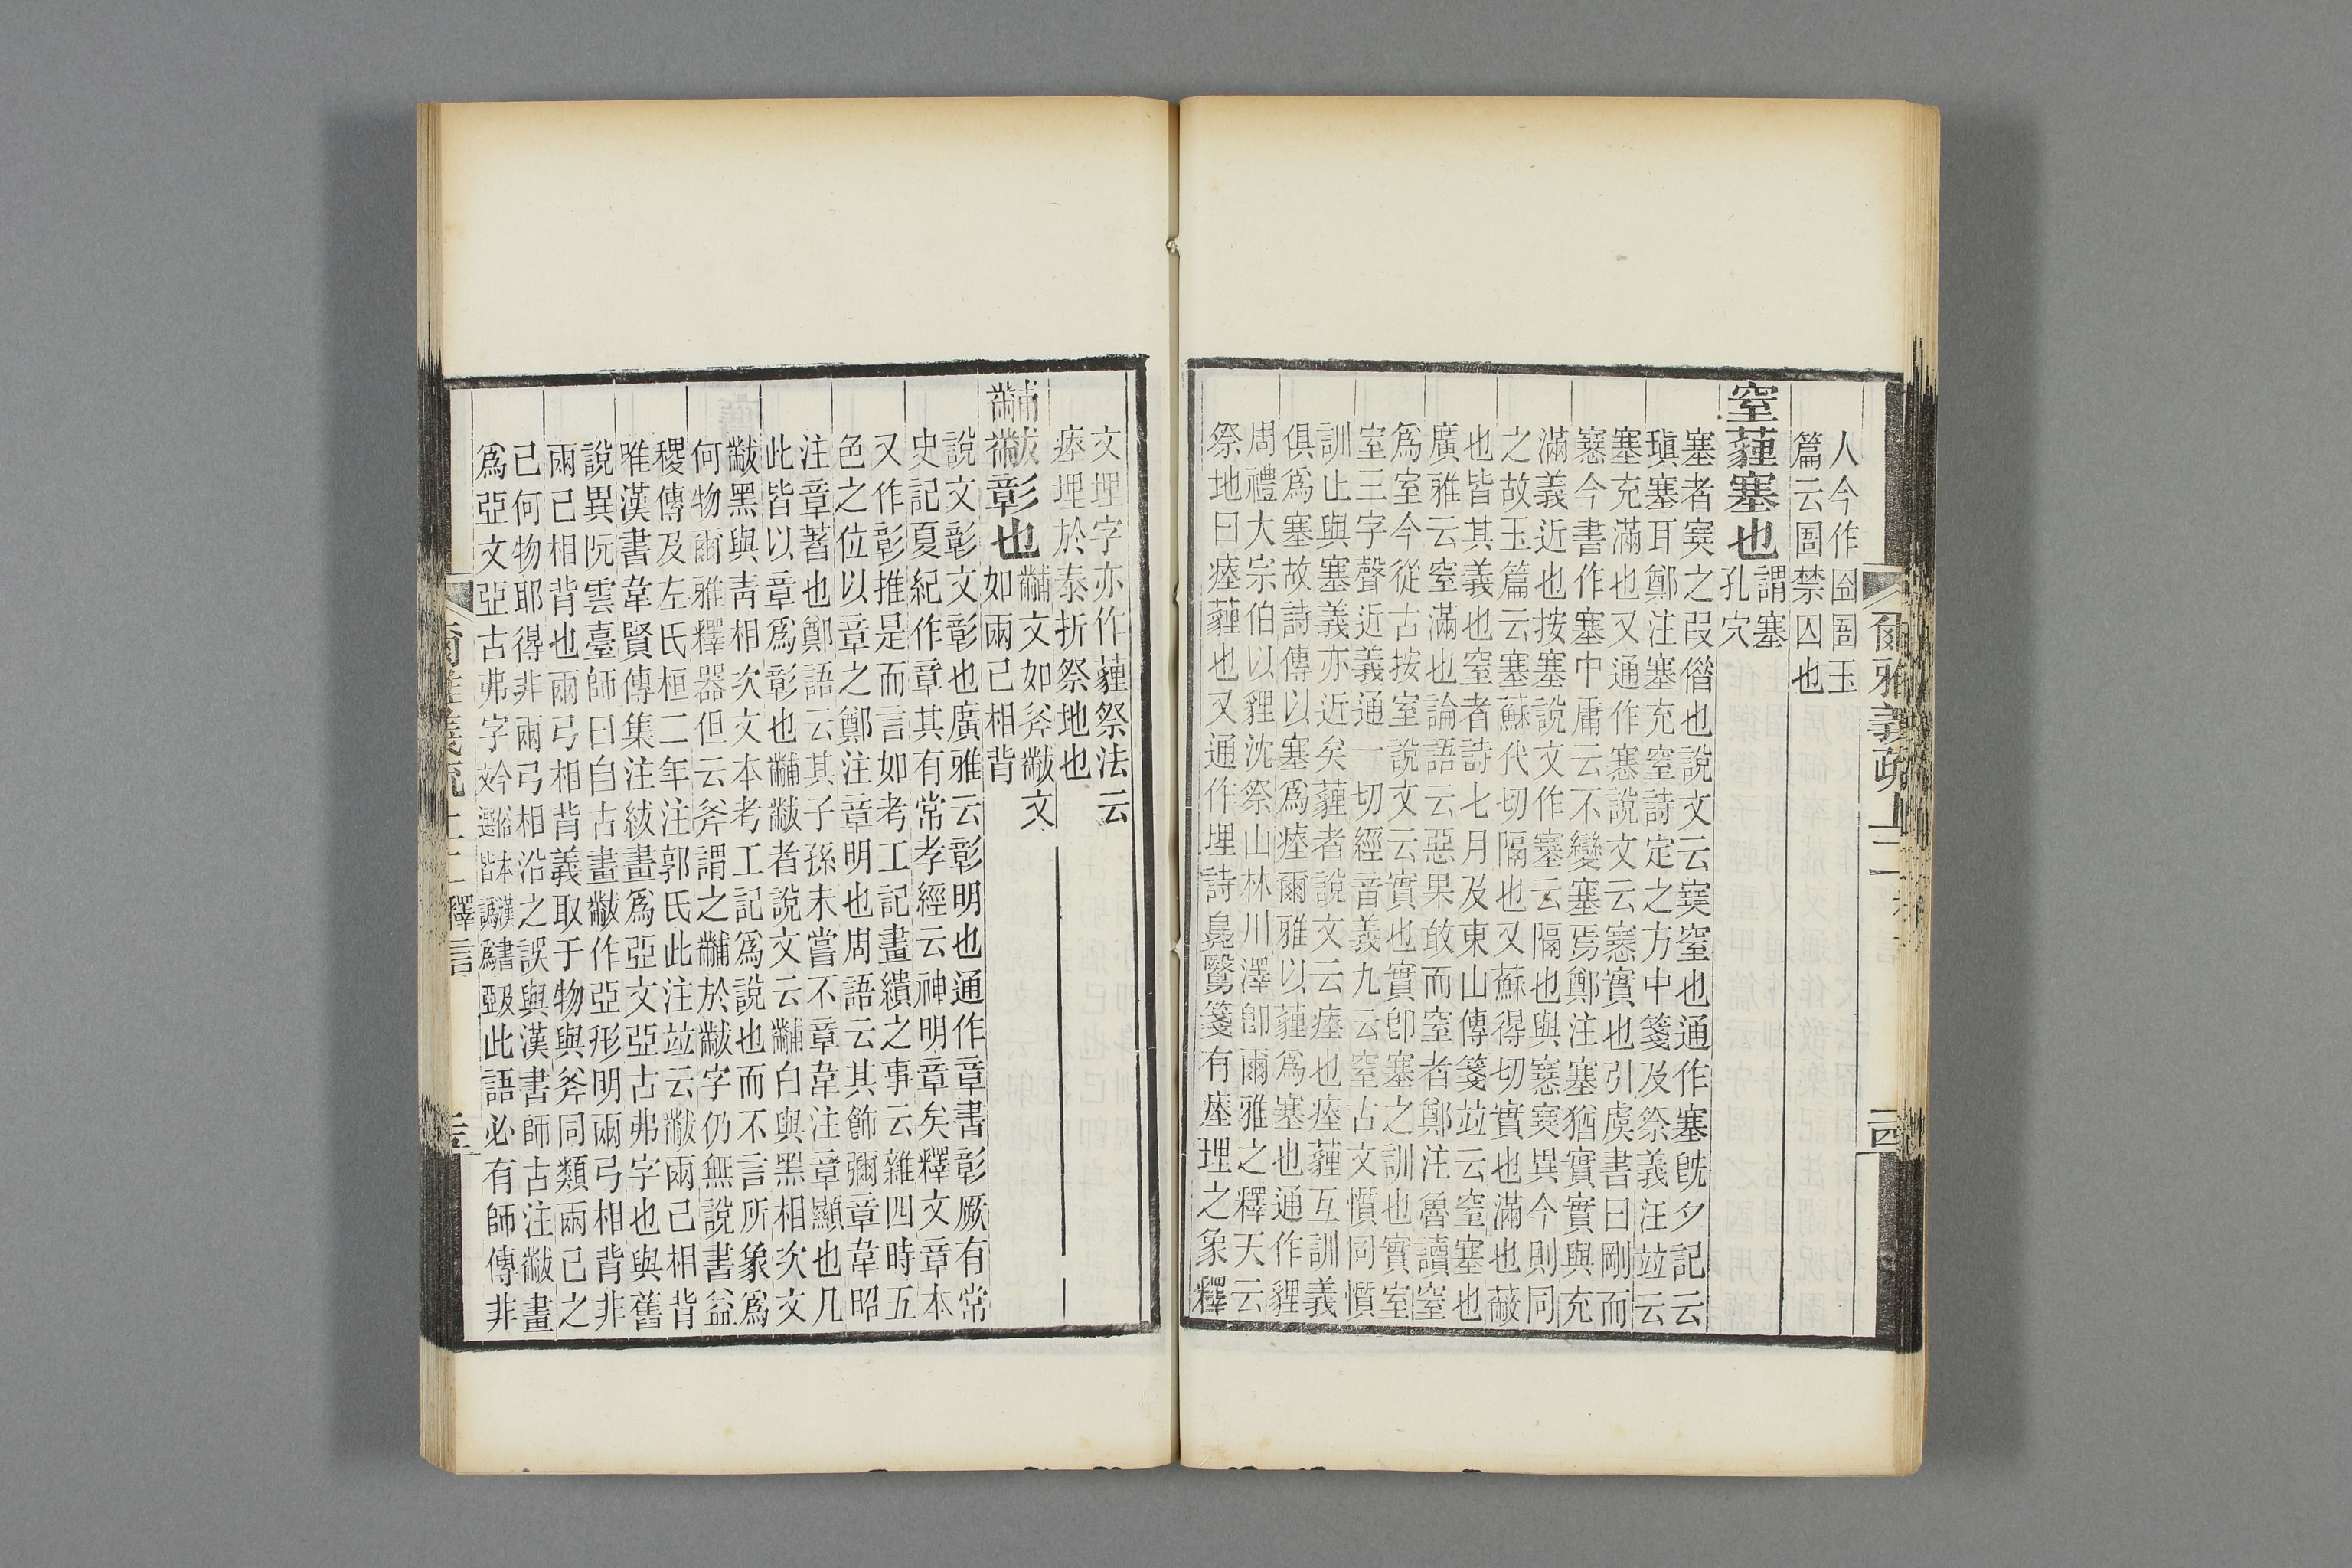 人今作圄囹圄玉
篇云圄禁囚也
窒薶塞也
謂塞
孔穴
塞者窫之叚僭也說文云窫窒也通作塞旣夕記云
瑱塞耳鄭注塞充窒詩定之方中箋及祭義注竝云
塞充滿也又通作寋說文云㥶實也引虞書曰剛而
㥶今書作塞中庸云不變塞焉鄭注塞猶實實與充
滿義近也按塞說文作塞云隔也與㥶窫異今則同
之故玉篇云塞蘇代切隔也又蘇得切實也滿也蔽
也皆其義也窒者詩七月及東山傳箋竝云窒塞也
廣雅云窒滿也論語云惡果敢而窒者鄭注魯讀窒
爲室今從古按室說文云實也實卽塞之訓也實室
窒三字聲近義通一切經音義九云窒古文懫同懫
訓止與塞義亦近矣薶者說文云瘞也瘞薶互訓義
俱爲塞故詩傳以塞爲瘞爾雅以薶爲塞也通作貍
周禮大宗伯以貍沈祭山林川澤卽爾雅之釋天云
祭地曰瘞薶也又通作埋詩鳧鷖箋有瘞埋之象釋
爾雅義疏上二釋言
二四
文埋字亦作薶祭法云
瘞埋於泰折祭地也
黼黻彰也
黼文如斧黻文
如兩己相背
說文彰文彰也廣雅云彰明也通作章書彰厥有常
史記夏紀作章其有常孝經云神明章矣釋文章本
又作彰推是而言如考工記畫繢之事云雜四時五
色之位以章之鄭注章明也周語云其飾彌章韋昭
注章著也鄭語云其子孫未嘗不章韋注章顯也凡
此皆以章爲彰也黼黻者說文云黼白與黑相次文
黻黑與靑相次文本考工記爲說也而不言所象爲
何物爾雅釋器但云斧謂之黼於黻字仍無說書益
稷傳及左氏桓二年注郭氏此注竝云黻兩己相背
唯漢書韋賢傳集注紱畫爲亞文亞古弗字也與舊
說異阮雲臺師曰自古畫黻作亞形明兩弓相背非
兩己相背也兩弓相背義取于物與斧同類兩己之
己何物耶得非兩弓相沿之誤與漢書師古注黻畫
爲亞文亞古弗字今俗本漢書文選皆譌爲㠭此語必有師傳非
爾雅義疏上二釋言
二五